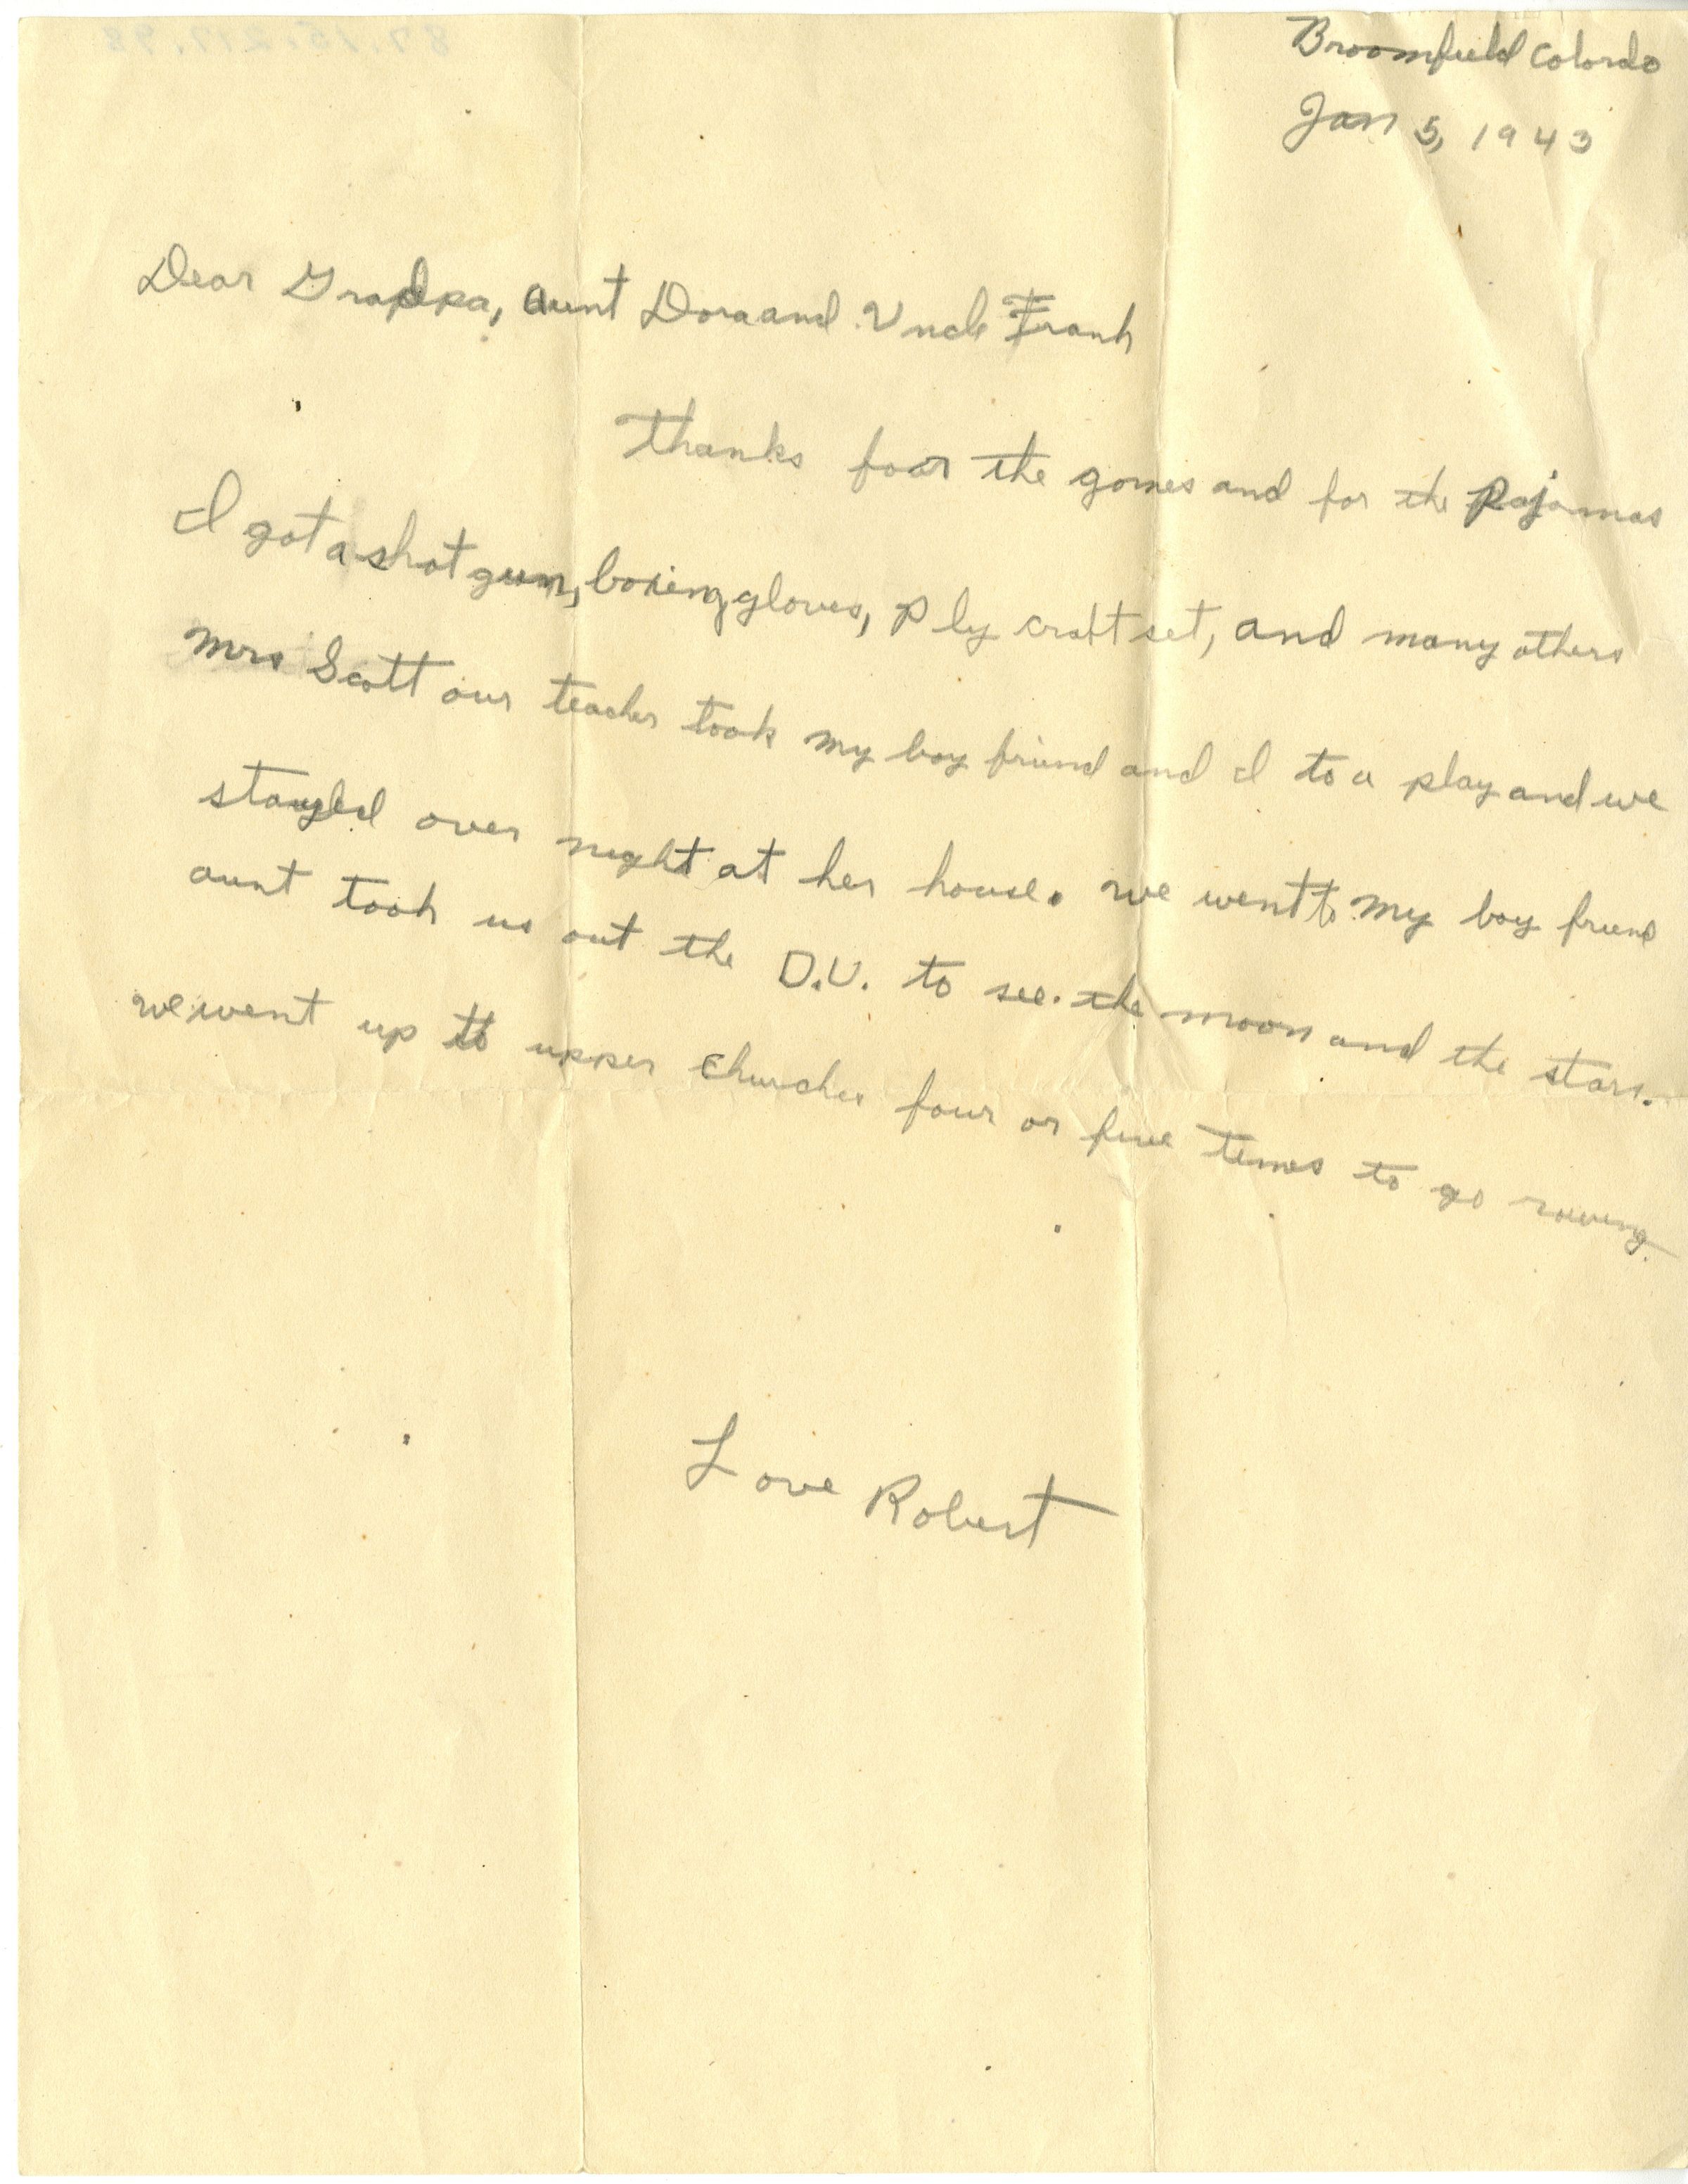 Broomfield Colordo
Jan 5, 1943
Dear Gradpa, aunt Dora and Uncle Frank
thanks foor the games and for the pajamas
I got a shot gun, boxing gloves, Ply craft set, and many others
Mrs Scott our teacher took my boy friend and I to a play and we
stayed over night at her house. we went to my boy friend
aunt took us out the D.U. to see the moon and the stars.
we went up to upper churches four or five times to go rowing.
Love Robert